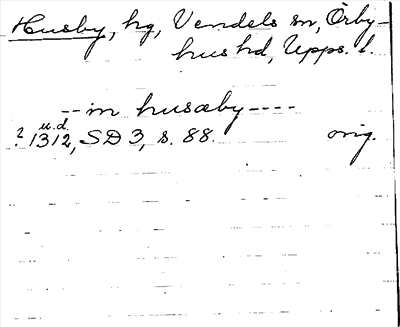 Husby, hg, Vendels sn, Örby-
hus hd, Upps. l.
-- in husæby ----
u.d.
? 1312, SD 3, s. 88. orig.